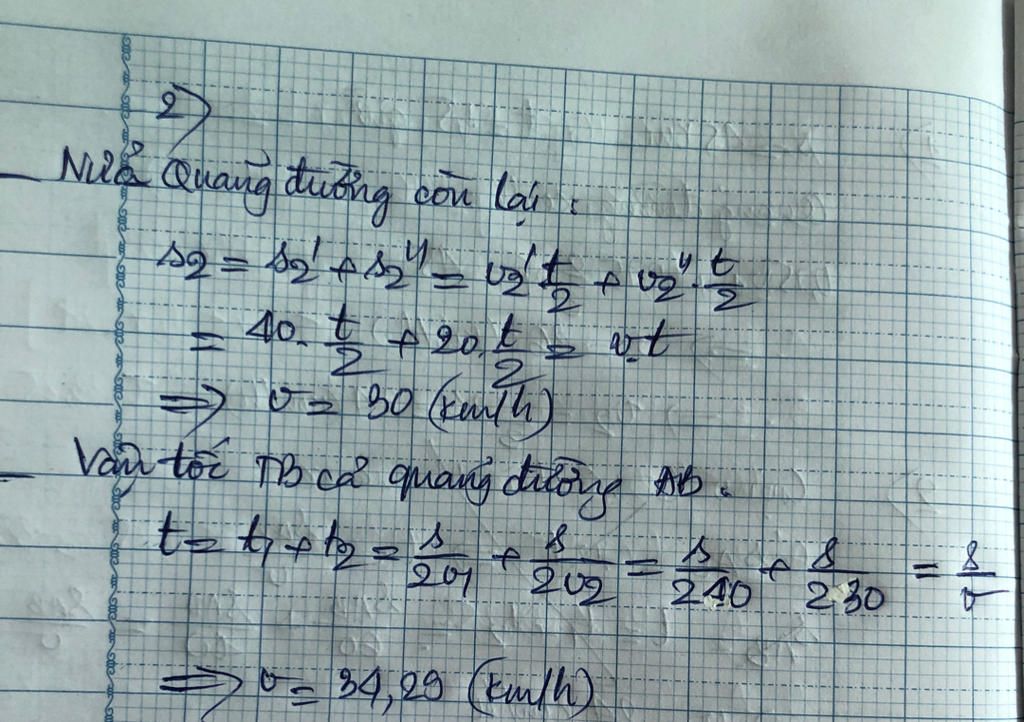 2)
- Nửa Quãng đường còn lại :
s2 = s2' + s2'' = v2' t/2 + v2''. t/2
= 40. t/2 + 20. t/2 = v.t
=> v = 30 (km/h)
- Vận tốc TB cả quãng đường AB.
t = t1 + t2 = s/2v1 + s/2v2 = s/2.40 + s/2.30 = s/v
=> v = 34,29 (km/h)